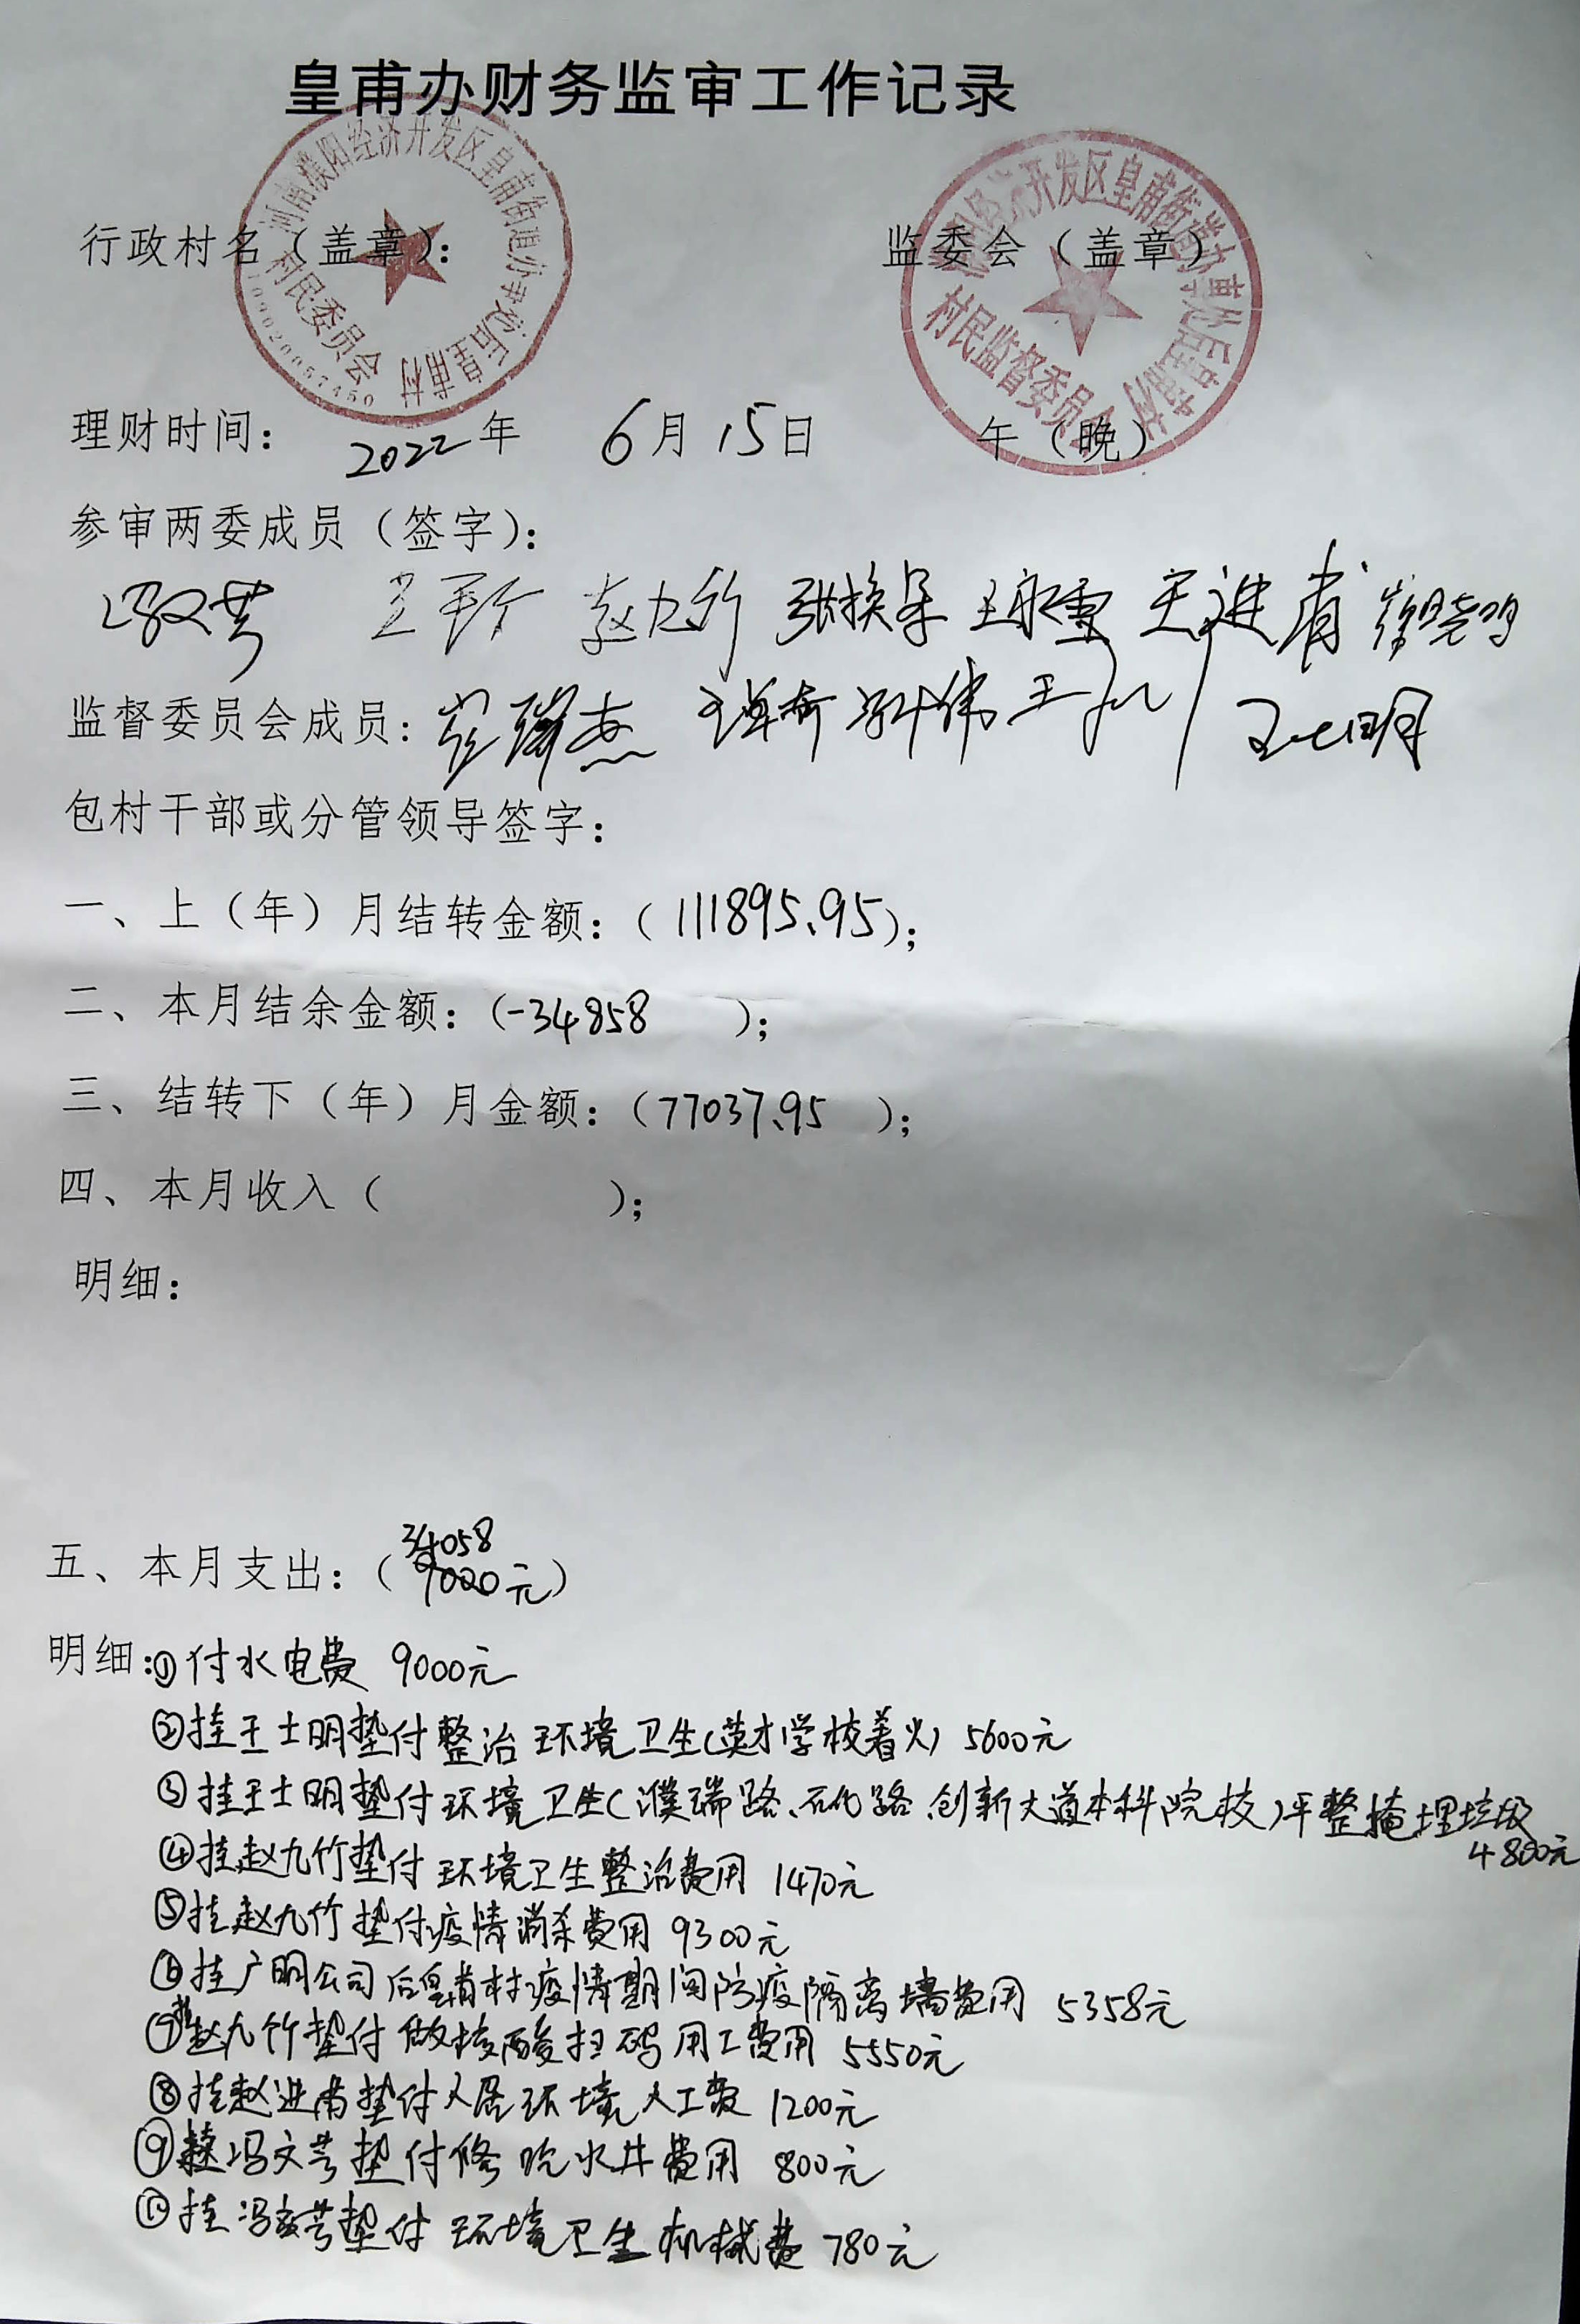 皇甫办财务监审工作记录
河南濮阳经济开发区皇甫街道办事处后皇甫村
村民委员会
经济开发区皇甫街道办事处后皇甫村
村民监督委员会
行政村名（盖章）： 监委会（盖章）
理财时间： 2022年 6月15日 午（晚）
参审两委成员（签字）：
冯文芳 赵九竹 张换朵 王永雪
监督委员会成员：崔瑞杰
包村干部或分管领导签字：
一、上（年）月结转金额：（111895.95）；
二、本月结余金额：（-34858 ）；
三、结转下（年）月金额：（77037.95 ）；
四、本月收入（ ）；
明细：
34058
五、本月支出：（9000元）
明细：①付水电费 9000元
②挂王士明垫付整治环境卫生（英才学校着火）5600元
③挂王士明垫付环境卫生（濮瑞路、石化路、创新大道本科院校）平整掩埋垃圾
4800元
④挂赵九竹垫付环境卫生整治费用 1470元
⑤挂赵九竹垫付疫情消杀费用 9300元
⑥挂广明公司后皇甫村疫情期间防疫隔离墙费用 5358元
⑦挂赵九竹垫付做核酸扫码用工费用 5550元
⑧挂赵进甫垫付人居环境人工费 1200元
⑨挂冯文芳垫付修吃水井费用 800元
⑩挂冯文芳垫付环境卫生机械费 780元